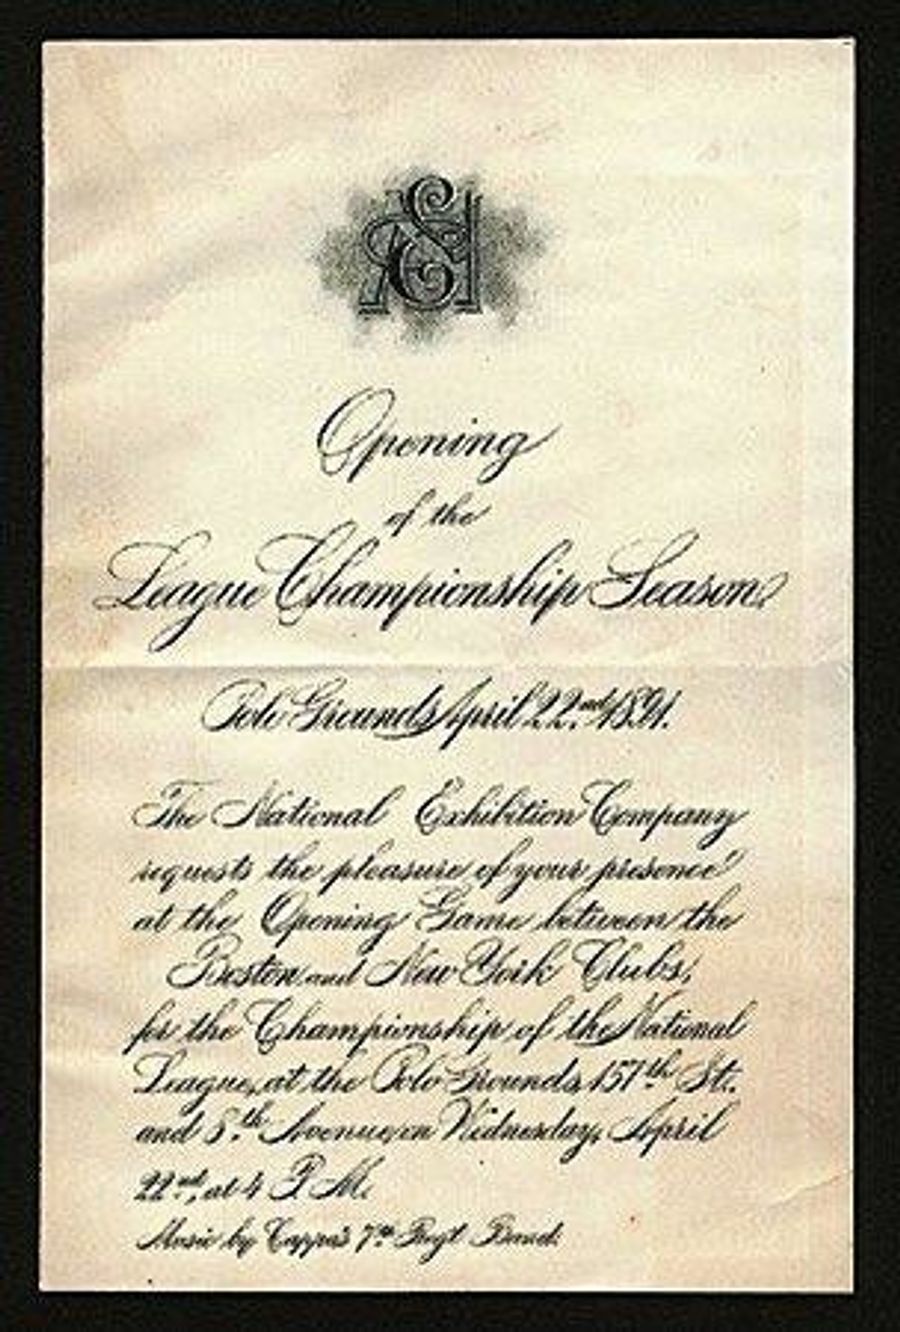 Opening
of the
League Championship Season
Polo Grounds April 22nd 1891.
The National Exhibition Company
requests the pleasure of your presence
at the Opening Game between the
Boston and New York Clubs,
for the Championship of the National
League, at the Polo Grounds, 157th St.
and 8th Avenue, on Wednesday, April
22nd, at 4 P.M.
Music by Cappa's 7th Regt Band.